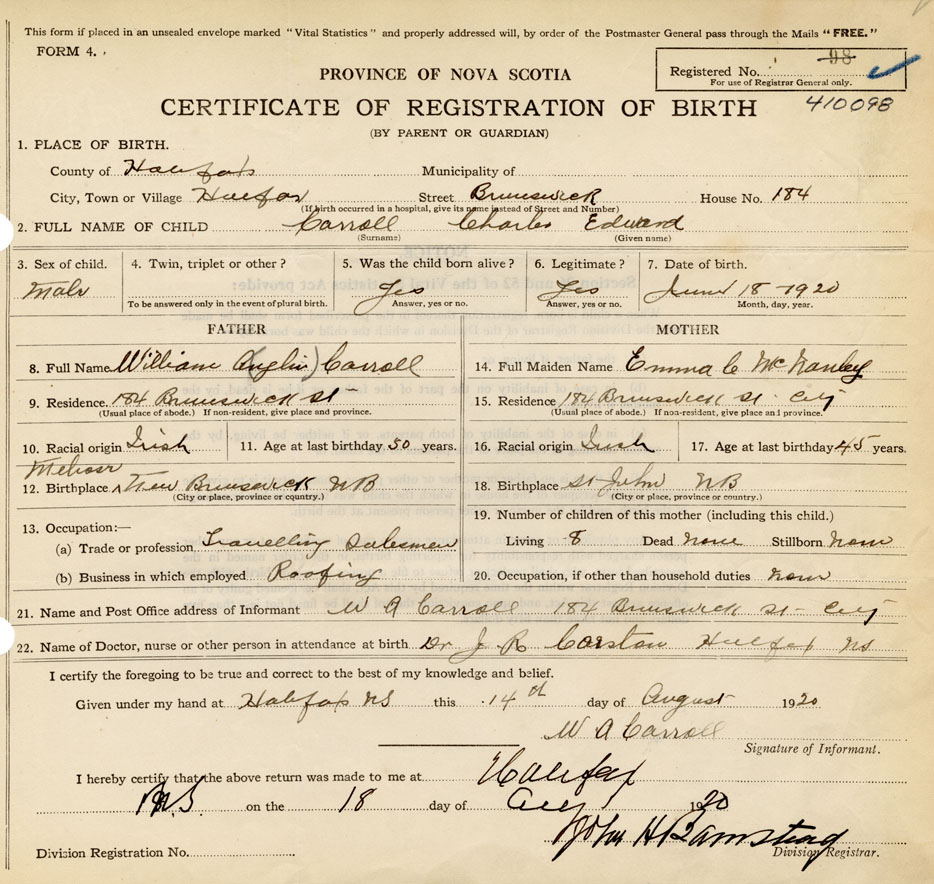 This form if placed in an unsealed envelope marked "Vital Statistics" and properly addressed will, by order of the Postmaster General pass through the Mails "FREE."
FORM 4.
98
Registered No.
For use of Registrar General only.
PROVINCE OF NOVA SCOTIA
CERTIFICATE OF REGISTRATION OF BIRTH
410098
(BY PARENT OR GUARDIAN)
1. PLACE OF BIRTH.
County of Halifax Municipality of
City, Town or Village Halifax Street Brunswick House No. 184
(If birth occurred in a hospital, give its name instead of Street and Number)
2. FULL NAME OF CHILD Carroll Charles Edward
(Surname) (Given name)
3. Sex of child. 4. Twin, triplet or other? 5. Was the child born alive? 6. Legitimate? 7. Date of birth.
Male Yes Yes June 18-1920
To be answered only in the event of plural birth. Answer, yes or no. Answer, yes or no. Month, day, year.
FATHER MOTHER
8. Full Name William (Anglin) Carroll 14. Full Maiden Name Emma C
9. Residence 184 Brunswick St 15. Residence 184 Brunswick St. City
(Usual place of abode.) If non-resident, give place and province. (Usual place of abode.) If non-resident, give place and province.
10. Racial origin Irish 11. Age at last birthday 50 years. 16. Racial origin Irish 17. Age at last birthday 45 years.
12. Birthplace New Brunswick NB 18. Birthplace St John NB
(City or place, province or country.) (City or place, province or country.)
13. Occupation:— 19. Number of children of this mother (including this child.)
(a) Trade or profession Travelling Salesman Living 8 Dead None Stillborn None
(b) Business in which employed Roofing 20. Occupation, if other than household duties None
21. Name and Post Office address of Informant W A Carroll 184 Brunswick St - City
22. Name of Doctor, nurse or other person in attendance at birth Dr J R Corston Halifax NS
I certify the foregoing to be true and correct to the best of my knowledge and belief.
Given under my hand at Halifax NS this 14th day of August 1920
W A Carroll
Signature of Informant.
I hereby certify that the above return was made to me at Halifax
N.S. on the 18 day of Aug 1920
John H Barnstead
Division Registrar.
Division Registration No.